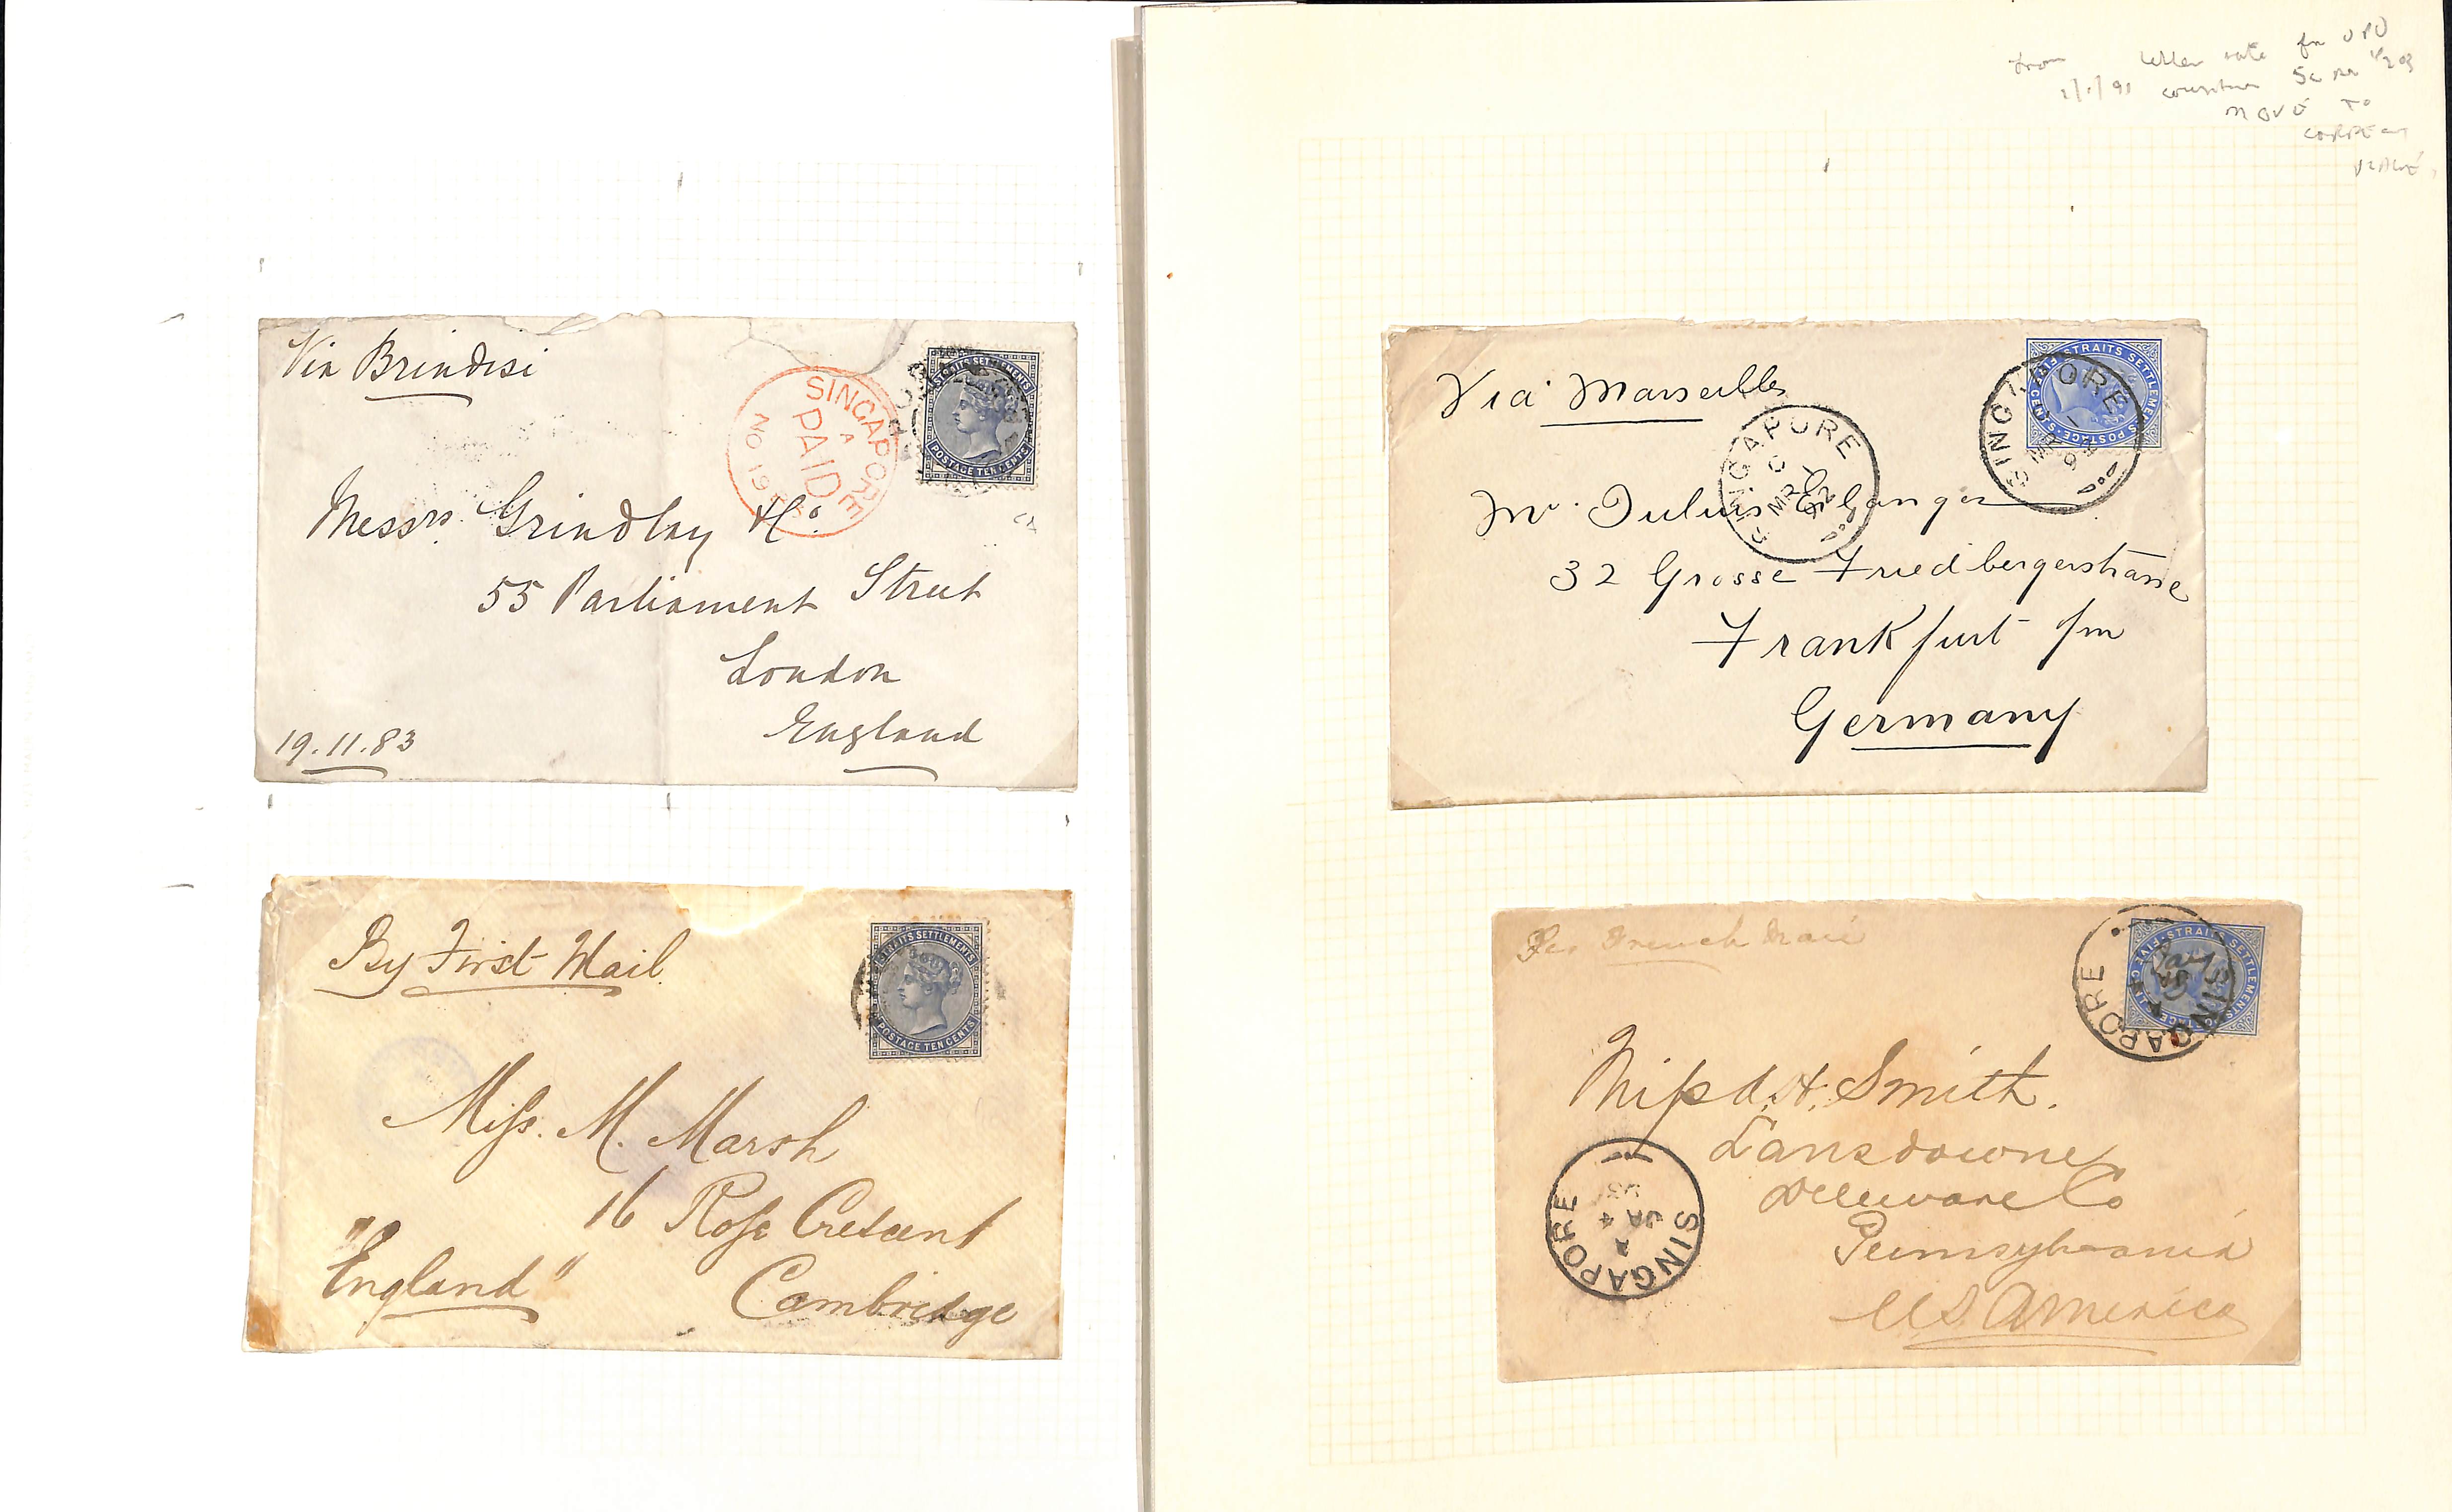 Via Brindisi
STRAITS SETTLEMENTS
POSTAGE TEN CENTS
SINGAPORE
A
PAID
NO 19
Messrs. Grindlay & Co.
55 Parliament Street
London
England
19.11.83
By First Mail
STRAITS SETTLEMENTS
POSTAGE TEN CENTS
Miss. M. Marsh
16 Rose Crescent
Cambridge
"England"
from letter rate for UPU
1/1/91 countries 5c per 1/2 oz
MOVE TO
CORRECT
PLACE
Via Marseilles
STRAITS SETTLEMENTS POSTAGE · FIVE CENTS
SINGAPORE
MR
92
SINGAPORE
C
MR
92
Mr. Julius Erlanger
32 Grosse Friedbergerstrasse
Frankfurt /m
Germany
Per French Mail
STRAITS SETTLEMENTS POSTAGE · FIVE CENTS
SINGAPORE
Miss A. H. Smith.
Lansdowne
Deleware Co
Pennsylvania
U.S. America
SINGAPORE
A
JA 4
93